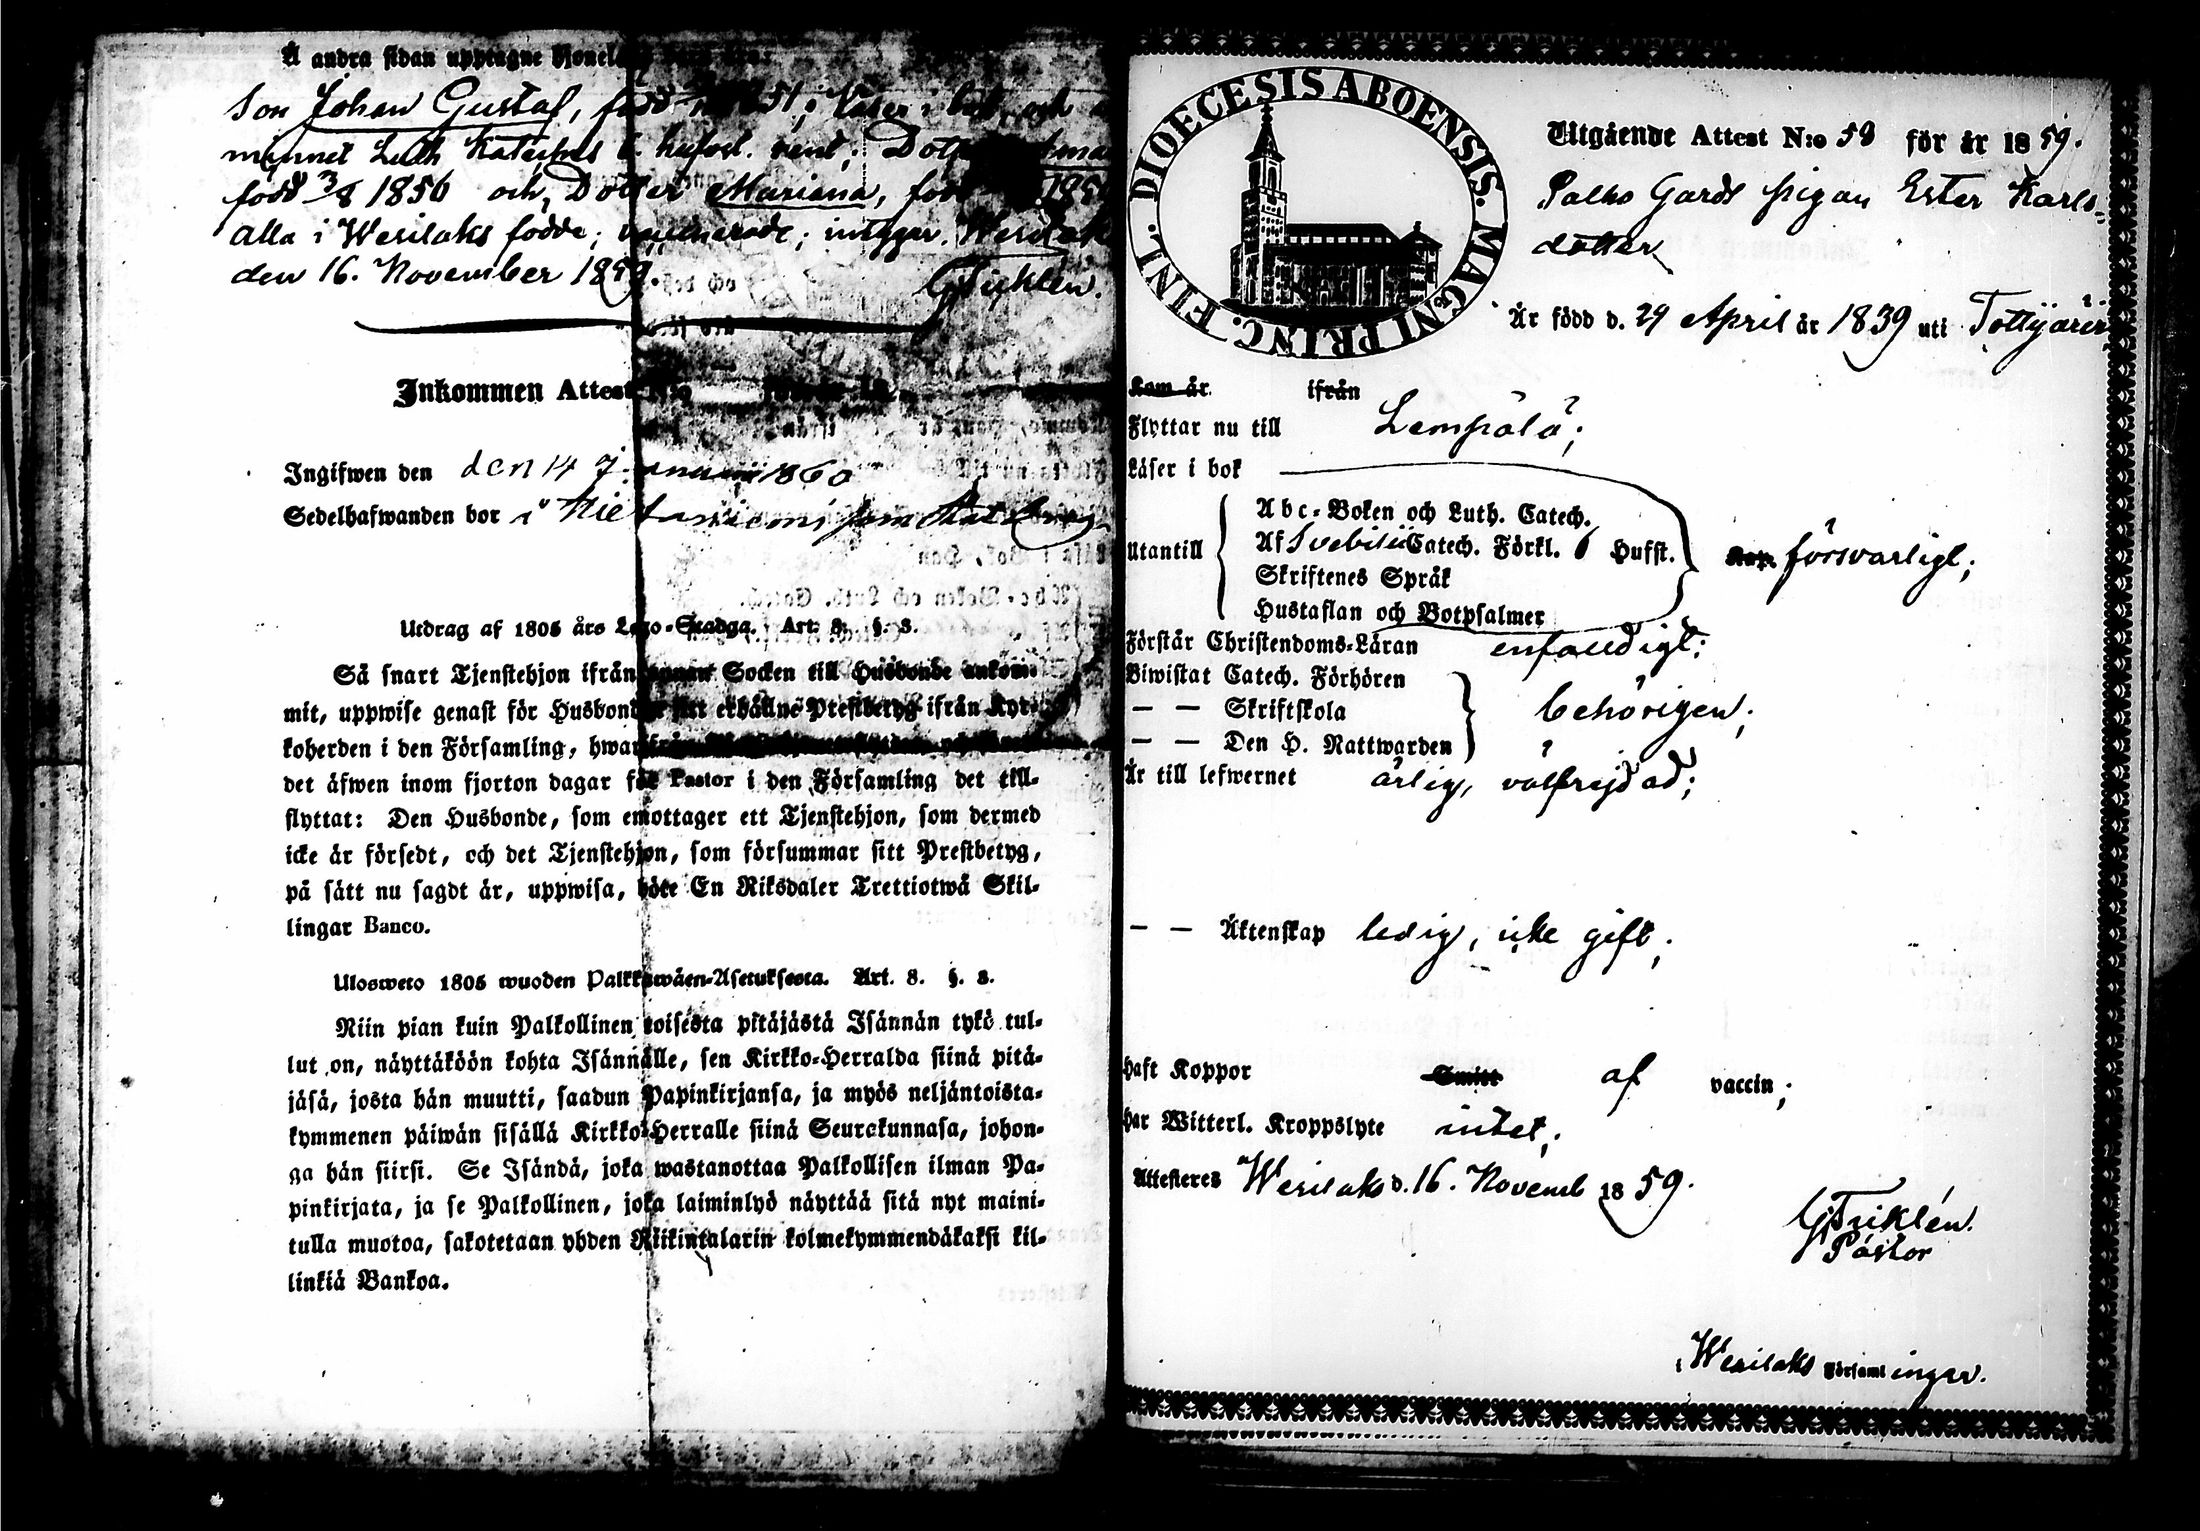 Å andra sidan upptagne
Son Johan Gustaf, född 51; läser i bok och
minnet Luth Kateches
född 3/8 1856 och, Dotter Mariana, född
alla i Wesilaks födde; vaccinerade; Wesilak
den 16. November 1859.
G Ticklén.
Inkommen Attest N:o
Ingifwen den den 14 Januari 1860
Sedelhafwanden bor i
Utdrag af 1805 års Lego-Stadga. Art. 8. §. 3.
Så snart Tjenstehjon ifrån annan Socken till Husbonde ankom-
mit, uppwise genast för Husbonden sitt erhållne Prestbetyg ifrån Kyr-
koherden i den Församling, hwarifrån
det äfwen inom fjorton dagar för Pastor i den Församling det till-
flyttat: Den Husbonde, som emottager ett Tjenstehjon, som dermed
icke är försedt, och det Tjenstehjon, som försummar sitt Prestbetyg,
på sätt nu sagdt är, uppwisa, böte En Riksdaler Trettiotwå Skil-
lingar Banco.
Ulosweto 1805 wuoden Palkkawäen-Asetuksesta. Art. 8. §. 3.
Niin pian kuin Palkollinen toisesta pitäjästä Isännän tykö tul-
lut on, näyttäköön kohta Isännälle, sen Kirkko-Herralda siinä pitä-
jäsä, josta hän muutti, saadun Papinkirjansa, ja myös neljäntoista-
kymmenen päiwän sisällä Kirkko-Herralle siinä Seurakunnasa, johon-
ga hän siirsi. Se Isändä, joka wastanottaa Palkollisen ilman Pa-
pinkirjata, ja se Palkollinen, joka laiminlyö näyttää sitä nyt maini-
tulla muotoa, sakotetaan yhden Riikintalarin kolmekymmendäkaksi kil-
linkiä Bankoa.
DIOECESIS ABOENSIS. MAGNI PRINC. FINL.
Utgående Attest N:o 58 för år 1859.
Palho Gårds pigan Ester Karls-
dotter
Är född d. 29 April år 1839 uti Tottijärvi
Kom år ifrån
Flyttar nu till Lempälä;
Läser i bok
Utantill
Abc-Boken och Luth. Catech.
Af Svebilii Catech. Förkl. 6 Hufst.
Skriftenes Språk
Hustaflan och Botpsalmer
försvarligt;
Förstår Christendoms-Läran enfaldigt;
Biwistat Catech. Förhören
— — Skriftskola behörigen;
— — Den H. Nattwarden
Är till lefwernet ärlig, välfrejdad;
— — Äktenskap ledig, icke gift;
Haft Koppor Smitt af vaccin;
Har Witterl. Kroppslyte intet;
Attesteras Wesilaks d. 16. Novemb 1859.
G Ticklén.
Pastor
i Wesilaks Församlingar.